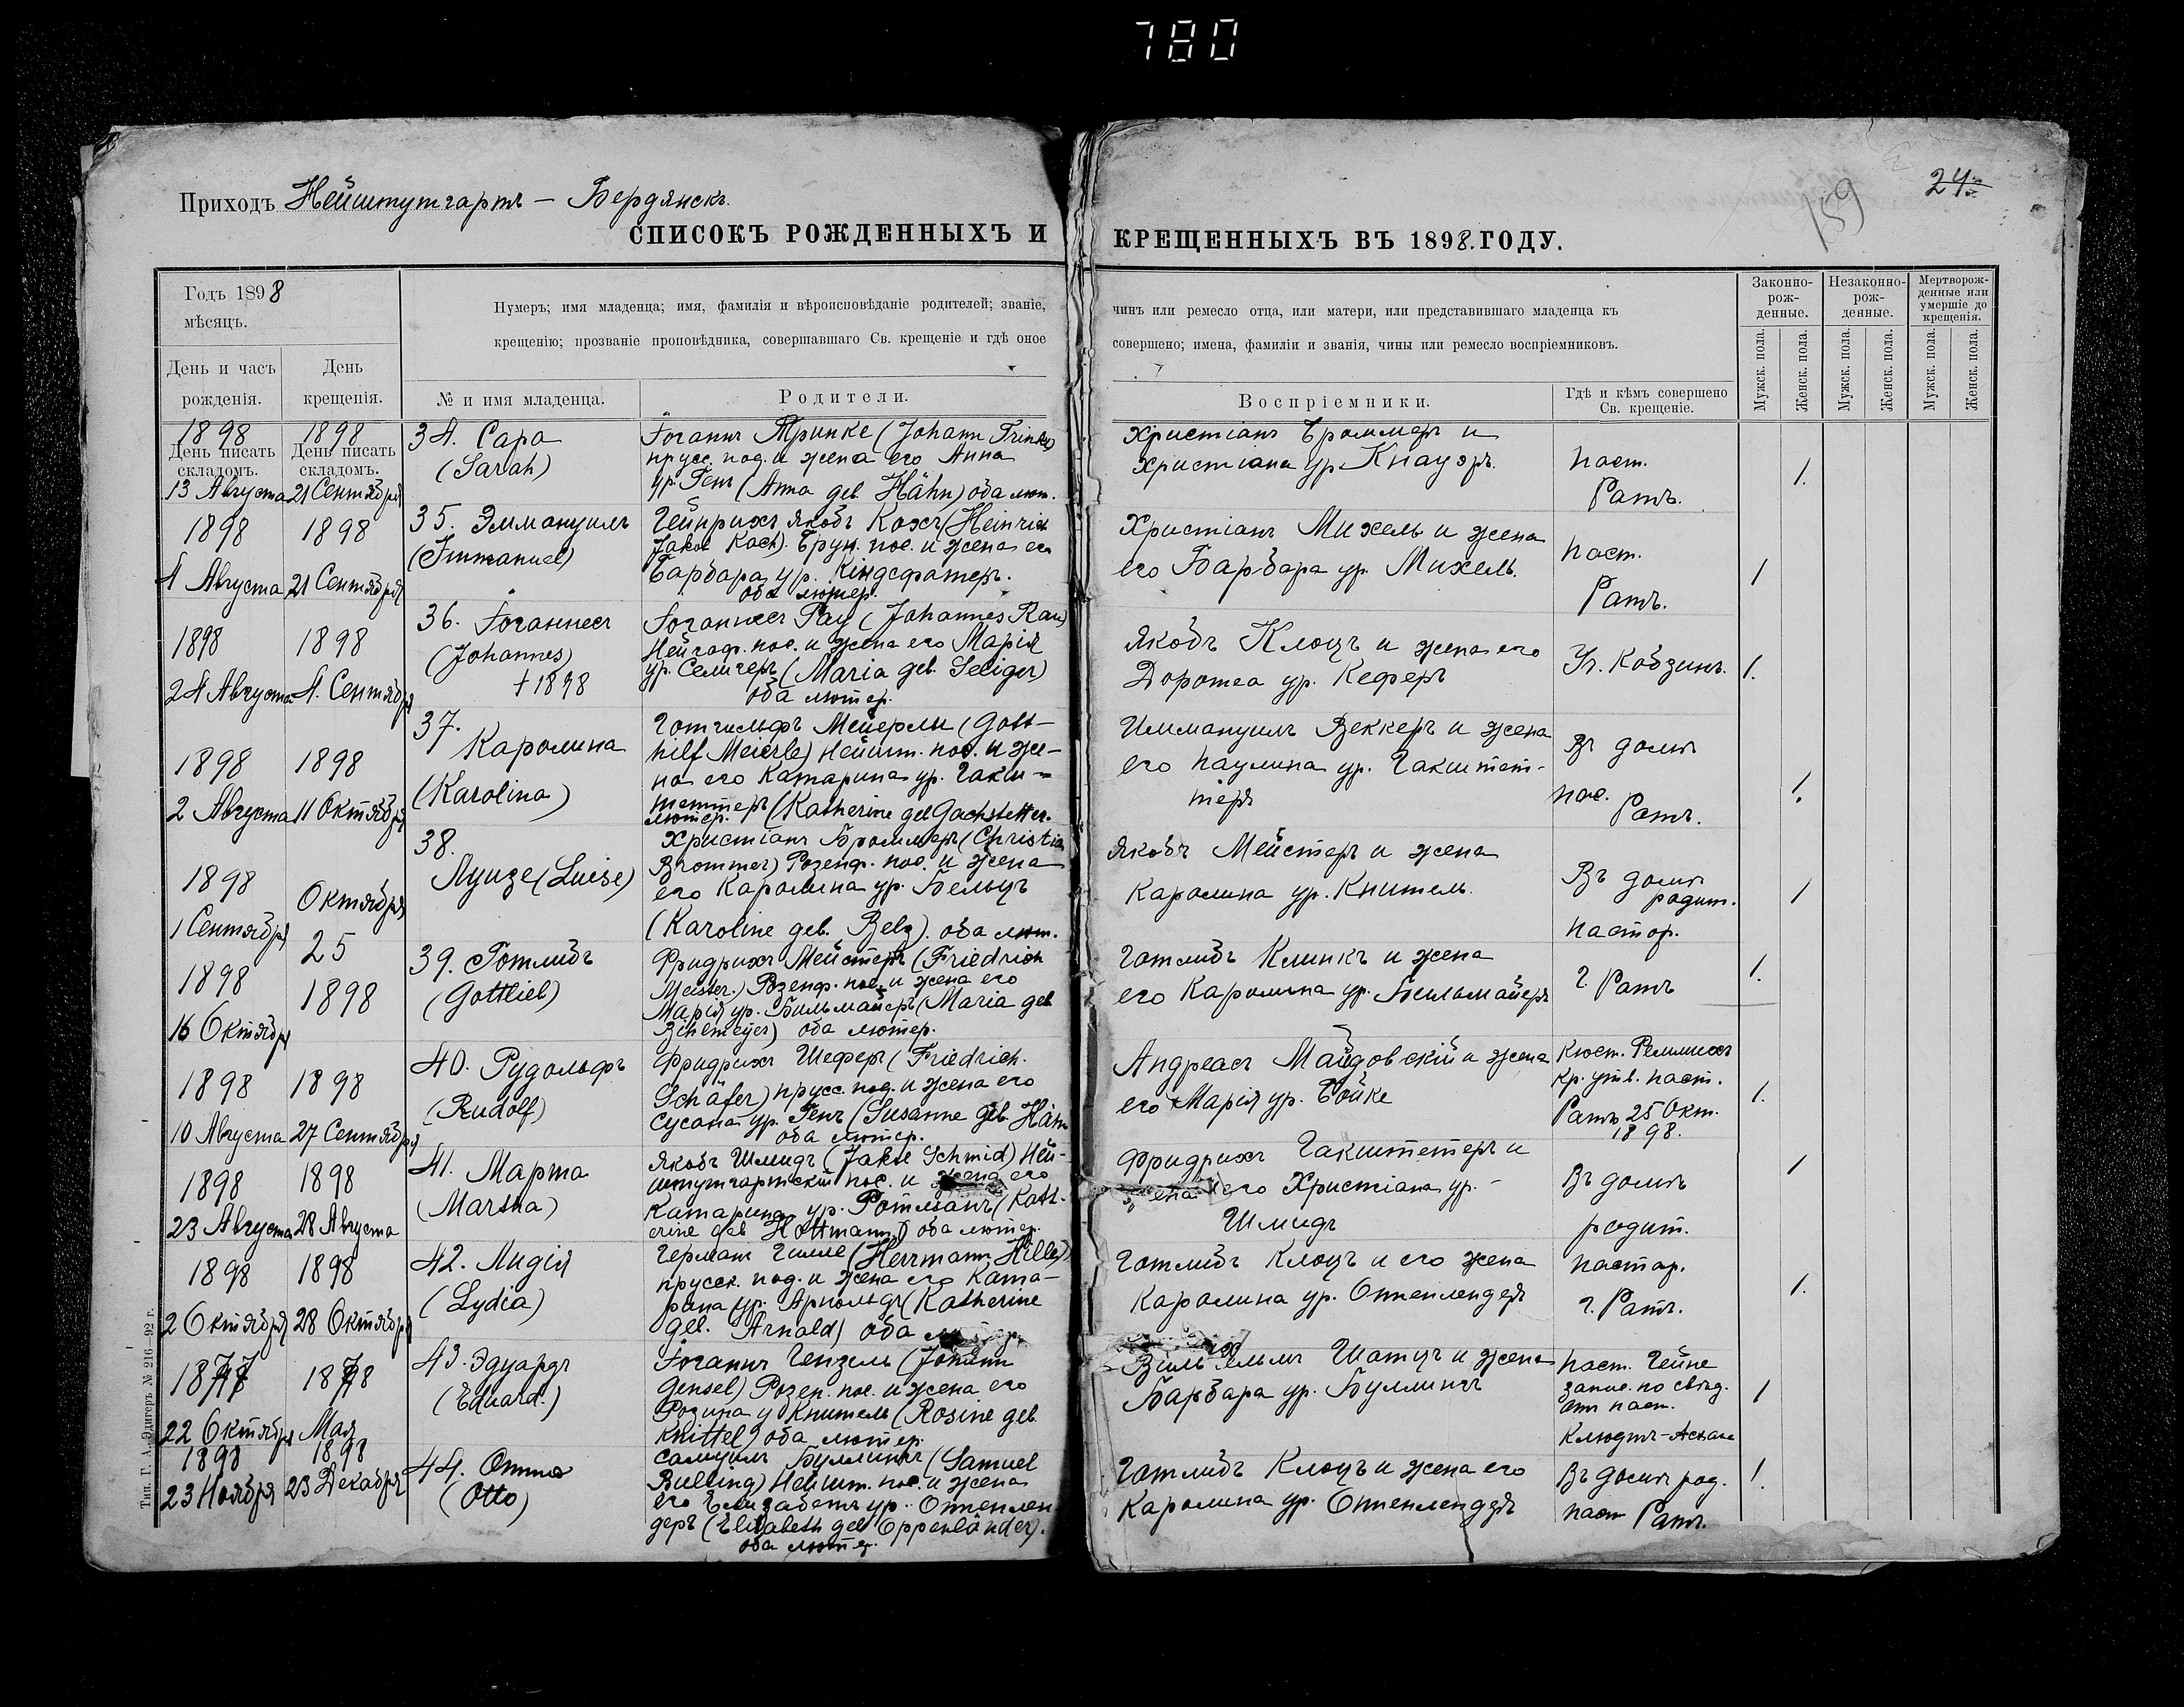 780
Приходъ Нейштутгартъ — Бердянскъ.
189
24.
СПИСОКЪ РОЖДЕННЫХЪ И КРЕЩЕННЫХЪ ВЪ 1898. ГОДУ.
Годъ 1898
мѣсяцъ.
День и часъ
рожденія.
День
крещенія.
Нумеръ; имя младенца; имя, фамилія и вѣроисповѣданіе родителей; званіе, чинъ или ремесло отца, или матери, или представившаго младенца къ
крещенію; прозваніе проповѣдника, совершавшаго Св. крещеніе и гдѣ оное совершено; имена, фамиліи и званія, чины или ремесло воспріемниковъ.
№ и имя младенца.
Родители.
Воспріемники.
Гдѣ и кѣмъ совершено
Св. крещеніе.
Законно-
рож-
денные.
Незаконно-
рож-
денные.
Мертворож-
денные или
умершіе до
крещенія.
Мужск. пола.
Женск. пола.
Мужск. пола.
Женск. пола.
Мужск. пола.
Женск. пола.
1898
День писать
складомъ.
13 Августа
1898
День писать
складомъ.
21 Сентября
34. Сара
(Sarah)
Іоганнъ Тринке (Johann Trinke)
прусс. под. и жена его Анна
ур. Генъ (Anna geb. Hähn) оба лют.
Христіанъ Броммеръ и
Христіана ур. Кнауэръ.
паст.
Ратъ.
1.
1898
4 Августа
1898
21 Сентября
35. Эммануилъ
(Immanuel)
Гейнрихъ Якобъ Кохъ (Heinrich
Jakob Koch). Брун. пос. и жена его
Барбара ур. Киндсфатеръ.
оба лютер.
Христіанъ Михель и жена
его Барбара ур. Михель.
паст.
Ратъ.
1
1898
24 Августа
1898
4. Сентября
36. Іоганнесъ
(Johannes)
† 1898
Іоганнесъ Рау (Johannes Rau)
Нейгоф. пос. и жена его Марія
ур. Селигеръ (Maria geb. Seliger)
оба лютер.
Якобъ Клоцъ и жена его
Доротеа ур. Кеферъ
Уч. Кобзинъ.
1.
1898
2 Августа
1898
11 Октября
37.
Каролина
(Karolina)
Готгильфъ Мейерли (Gott-
hilf Meierle) Нейшт. пос. и же-
на его Катарина ур. Гакш-
теттеръ (Katherine geb Gachstetter.
лютер.
Иммануилъ Веккеръ и жена
его Паулина ур. Гакштет-
теръ
Въ домѣ
пос.
Ратъ.
1.
1898
1 Сентября
Октября
25
1898
38.
Луизе (Luise)
Христіанъ Броммеръ (Christian
Brommer) Розенф. пос. и жена
его Каролина ур. Бельцъ
(Karoline geb. Belz). оба лют.
Якобъ Мейстеръ и жена
Каролина ур. Книтель.
Въ домѣ
родит.
пастор.
1
1898
16 Октября
39. Готлибъ
(Gottlieb)
Фридрихъ Мейстеръ (Friedrich
Meister.) Розенф. пос. и жена его
Марія ур. Бильмайеръ (Maria geb
Bihlmeyer) оба лютер.
Готлибъ Клинкъ и жена
его Каролина ур. Бильмайеръ
Г. Ратъ
1.
1898
10 Августа
1898
27 Сентября
40. Рудольфъ
(Rudolf)
Фридрихъ Шеферъ (Friedrich.
Schäfer) прусс. под. и жена его
Сусана ур. Генъ (Susanne geb. Hähn
оба лютер.
Андреасъ Майдовскій и жена
его Марія ур. Бойке
Кюст. Реммихъ
кр. утв. паст.
Ратъ 25 Окт.
1898.
1.
1898
23 Августа
1898
28 Августа
41. Марта
(Martha)
Якобъ Шмидъ (Jakob Schmid) Ней-
штутгартскій пос. и жена его
Катарина ур. Ротманъ (Kath-
erine geb Hottmann) оба лютер.
Фридрихъ Гакштетеръ и
жена его Христіана ур. -
Шмидъ
Въ домѣ
родит.
1
1898
2 Октября
1898
28 Октября
42. Лидія
(Lydia)
Германъ Гилле (Herrmann Hille)
прусск. под. и жена его Ката-
рина ур. Арнольдъ (Katherine
geb. Arnold) оба
Готлибъ Клоцъ и его жена
Каролина ур. Оппенлендеръ
пастор.
Г. Ратъ.
1.
22 Октября
Мая
1898
43. Эдуардъ
(Eduard.)
Іоганнъ Гензель (Johann
Gensel) Розен. пос. и жена его
Розина у Книтель (Rosine geb.
Knittel) оба лютер.
Вильгельмъ Шатцъ и жена
Барбара ур. Буллингъ
паст. Гейне
запис. по свѣд.
отъ паст.
1
1898
23 Ноября
1898
23 Декабря
44. Отто
(Otto)
Самуилъ Буллингъ (Samuel
Bulling) Нейшт. пос. и жена
его Елизабетъ ур. Оппенлен
деръ (Elisabeth geb. Oppenländer).
оба лютер.
Готлибъ Клоцъ и жена его
Каролина ур. Оппенлендеръ
Въ домѣ род.
паст Ратъ.
1.
Тип. Г. А. Эдигеръ № 216—92 г.